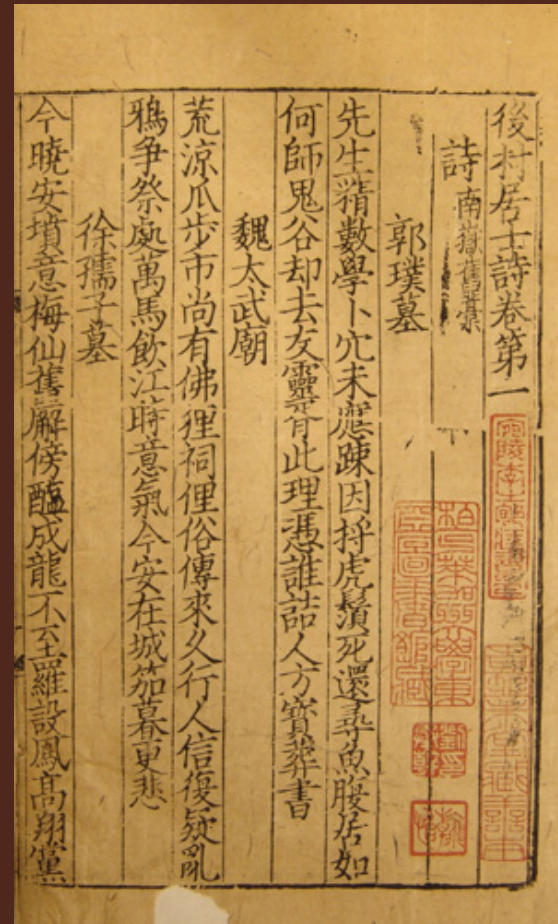 後村居士詩卷第一
詩 南嶽舊藁
郭璞墓
先生精數學卜穴未應踈因捋虎鬚死還尋魚腹居如
何師鬼谷却去友靈胥此理憑誰詰人方寶葬書
魏太武廟
荒涼瓜步市尚有佛狸祠俚俗傳來久行人信復疑乱
鴉争祭處萬馬飲江時意氣今安在城笳暮更悲
徐孺子墓
今曉安墳意梅仙舊廨傍醢成龍不至羅設鳳高翔黨